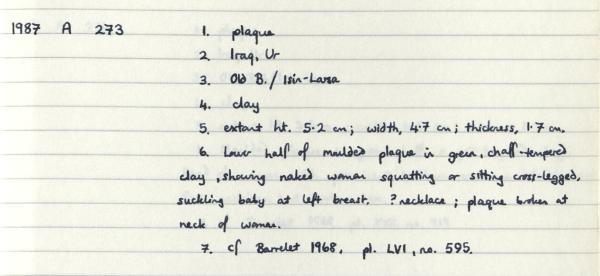 1987 A 273 1. plaque
2. Iraq, Ur
3. Old B./Isin-Larsa
4. clay
5. extant ht. 5·2 cm; width, 4·7 cm; thickness, 1·7 cm.
6. Lower half of moulded plaque in green, chaff-tempered
clay, showing naked woman squatting or sitting cross-legged,
suckling baby at left breast. ?necklace; plaque broken at
neck of woman.
7. cf Barrelet 1968, pl. LVI, no. 595.